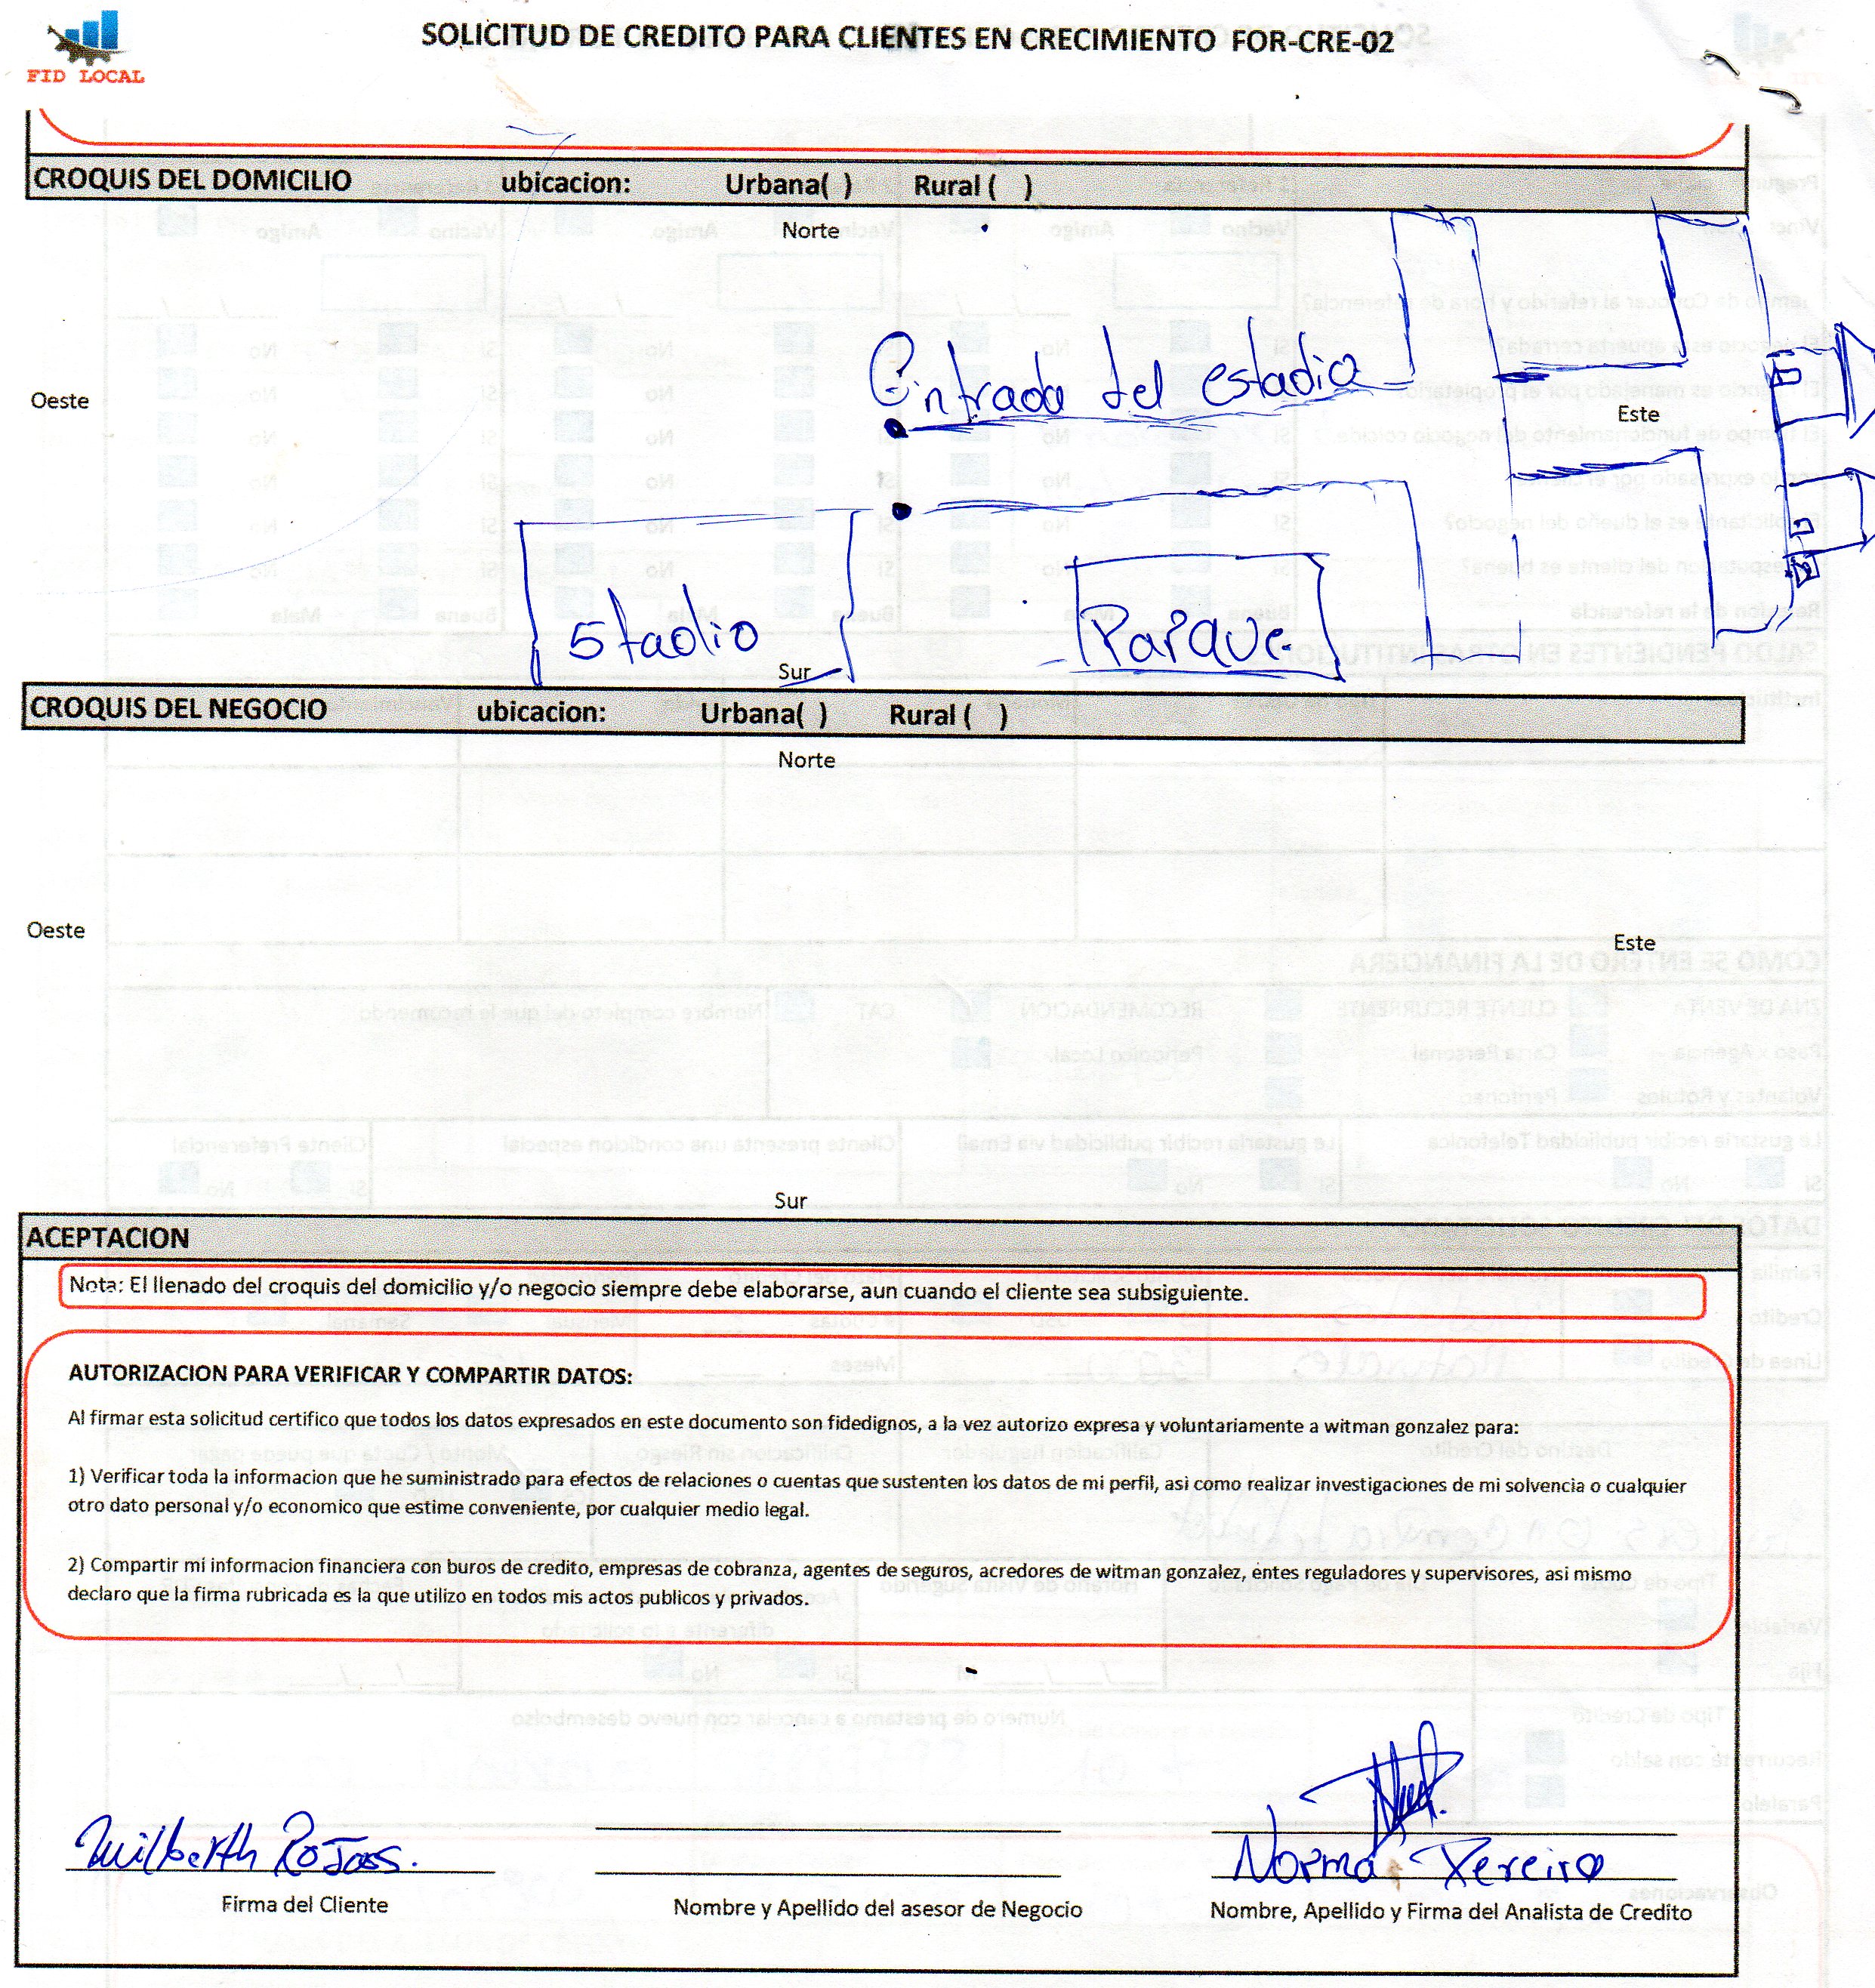 FID LOCAL
SOLICITUD DE CREDITO PARA CLIENTES EN CRECIMIENTO FOR-CRE-02
CROQUIS DEL DOMICILIO ubicacion: Urbana( ) Rural ( )
Norte
Entrada del estadio
Oeste
Este
Stadio
Parque
Sur
CROQUIS DEL NEGOCIO ubicacion: Urbana( ) Rural ( )
Norte
Oeste
Este
Sur
ACEPTACION
Nota: El llenado del croquis del domicilio y/o negocio siempre debe elaborarse, aun cuando el cliente sea subsiguiente.
AUTORIZACION PARA VERIFICAR Y COMPARTIR DATOS:
Al firmar esta solicitud certifico que todos los datos expresados en este documento son fidedignos, a la vez autorizo expresa y voluntariamente a witman gonzalez para:
1) Verificar toda la informacion que he suministrado para efectos de relaciones o cuentas que sustenten los datos de mi perfil, asi como realizar investigaciones de mi solvencia o cualquier
otro dato personal y/o economico que estime conveniente, por cualquier medio legal.
2) Compartir mi informacion financiera con buros de credito, empresas de cobranza, agentes de seguros, acredores de witman gonzalez, entes reguladores y supervisores, asi mismo
declaro que la firma rubricada es la que utilizo en todos mis actos publicos y privados.
Wilberth Rojas.
Norma Pereira
Firma del Cliente
Nombre y Apellido del asesor de Negocio
Nombre, Apellido y Firma del Analista de Credito